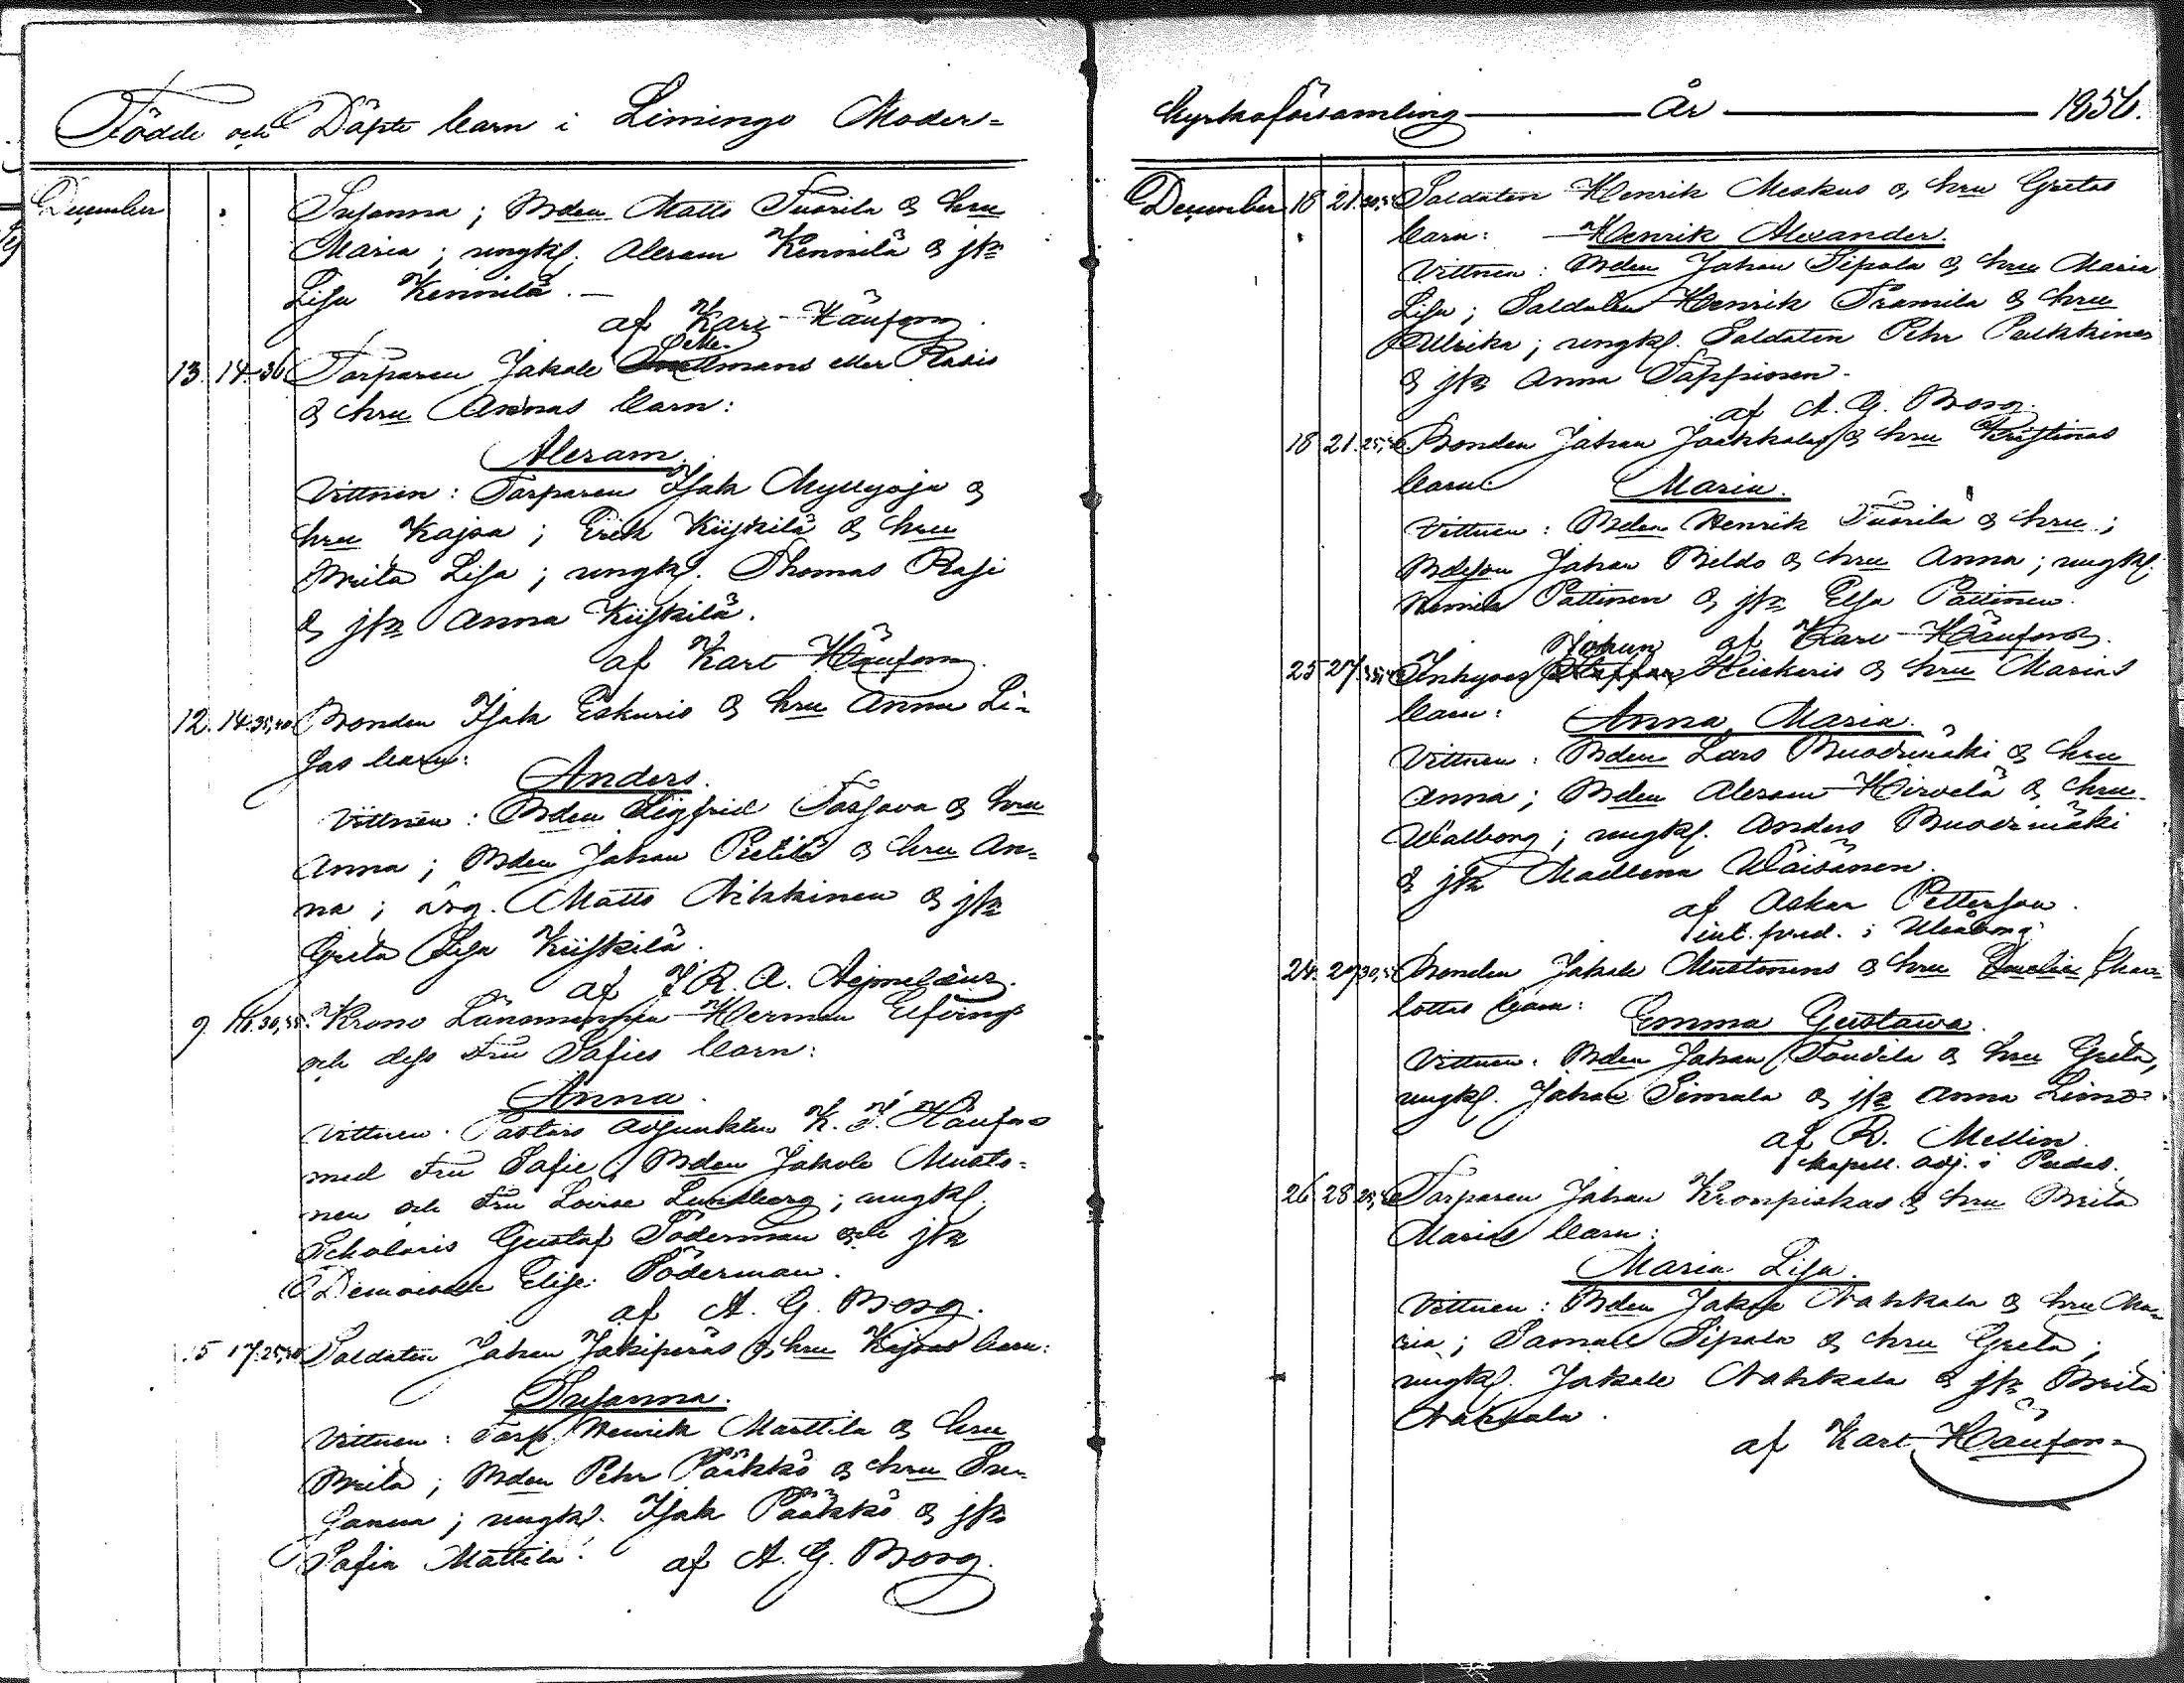 Födde och Döpte barn i Limingo Moder=
December
Susanna; Bden Matts Tuorila & hru
Maria; ungkl. Abram Kennilä & jfr
Lisa Kennilä.
af Karl Hänfors
13. 14. 36 Torparen Jakob eller Rasis
& hru Annas barn:
Abram.
Vittnen: Torparen Isak Myllyoja &
hru Kajsa; Erik Kiiskilä & hru
Brita Lisa; ungkl. Thomas Rasi
& jfr Anna Kiiskilä.
af Karl Hänfors
12. 14. 35,40 Bonden Isak Eskuris & hru Anna Li-
sas barn:
Anders.
Vittnen: Bden Sigfrid Tassava & hru
Anna; Bden Johan Pietilä & hru An=
na; drg. Matts Nikkinen & jfr
Greta Lisa Kiiskilä.
af J. R. A. Hejmelæus.
9. Krono Länsmannen Herman Elfvings
och dess Fru Sofies barn:
Anna.
Vittnen: Pastors adjunkten K. F. Hänfors
med Fru Sofie; Bden Jakob Musto-
nen och Fru Lovise Lundberg; ungkl.
Scholaris Gustaf Söderman och jfr
Demoiselle Elise Söderman.
af A. G. Borg.
15 17. Soldaten Johan Jokiperäs & hru Kajsas barn:
Susanna.
Vittnen: Torp. Henrik Marttila & hru
Brita; Bden Pehr Pääkkö & hru Su-
sanna; ungkl. Isak Pääkkö & jfr
Sofia Mattila.
af A. G. Borg.
kyrkoförsamling — År — 1856.
December 18 21. Soldaten Henrik Meskus & hru Gretas
barn: Henrik Alexander.
Vittnen: Bden Johan Sipola & hru Maria
Lisa; Soldaten Henrik & hru
Ulrika; ungkl. Soldaten Pehr Pulkkinen
& jfr Anna Tappinen.
af A. G. Borg.
18 21. 25, Bonden Johan Jaakkolas & hru Kristinas
barn: Maria.
Vittnen: Bden Henrik Tuorila & hru;
Bdeson Johan Beldo & hru Anna; ungkl.
Henrik Pättinen & jfr Elsa Pättinen.
af Karl Hänfors.
Johan
25 27. Inhyses Heiskaris & hru Marias
barn: Anna Maria.
Vittnen: Bden Lars Buodinäki & hru
Anna; Bden Abram Hirvelä & hru
Walborg; ungkl. Anders Buodinäki
& jfr Madlena Wäisänen.
af Oskar Petterson.
int. pred. i Uleåborg
24. 27. Bonden Jakob Mustonens & hru Char-
lottas barn: Emma Gustawa.
Vittnen: Bden Johan & hru Greta,
ungkl. Johan Simula & jfr Anna
af R. Mellin.
kapell. adj. i Pudas.
26 28 Torparen Johan Krompiskas & hru Brita
Marias barn:
Maria Lisa.
Vittnen: Bden Jakob Nahkala & hru Ma-
ria; Samuel Sipola & hru Greta;
ungkl. Jakob Nahkala & jfr Brita
Nahkala.
af Karl Hänfors